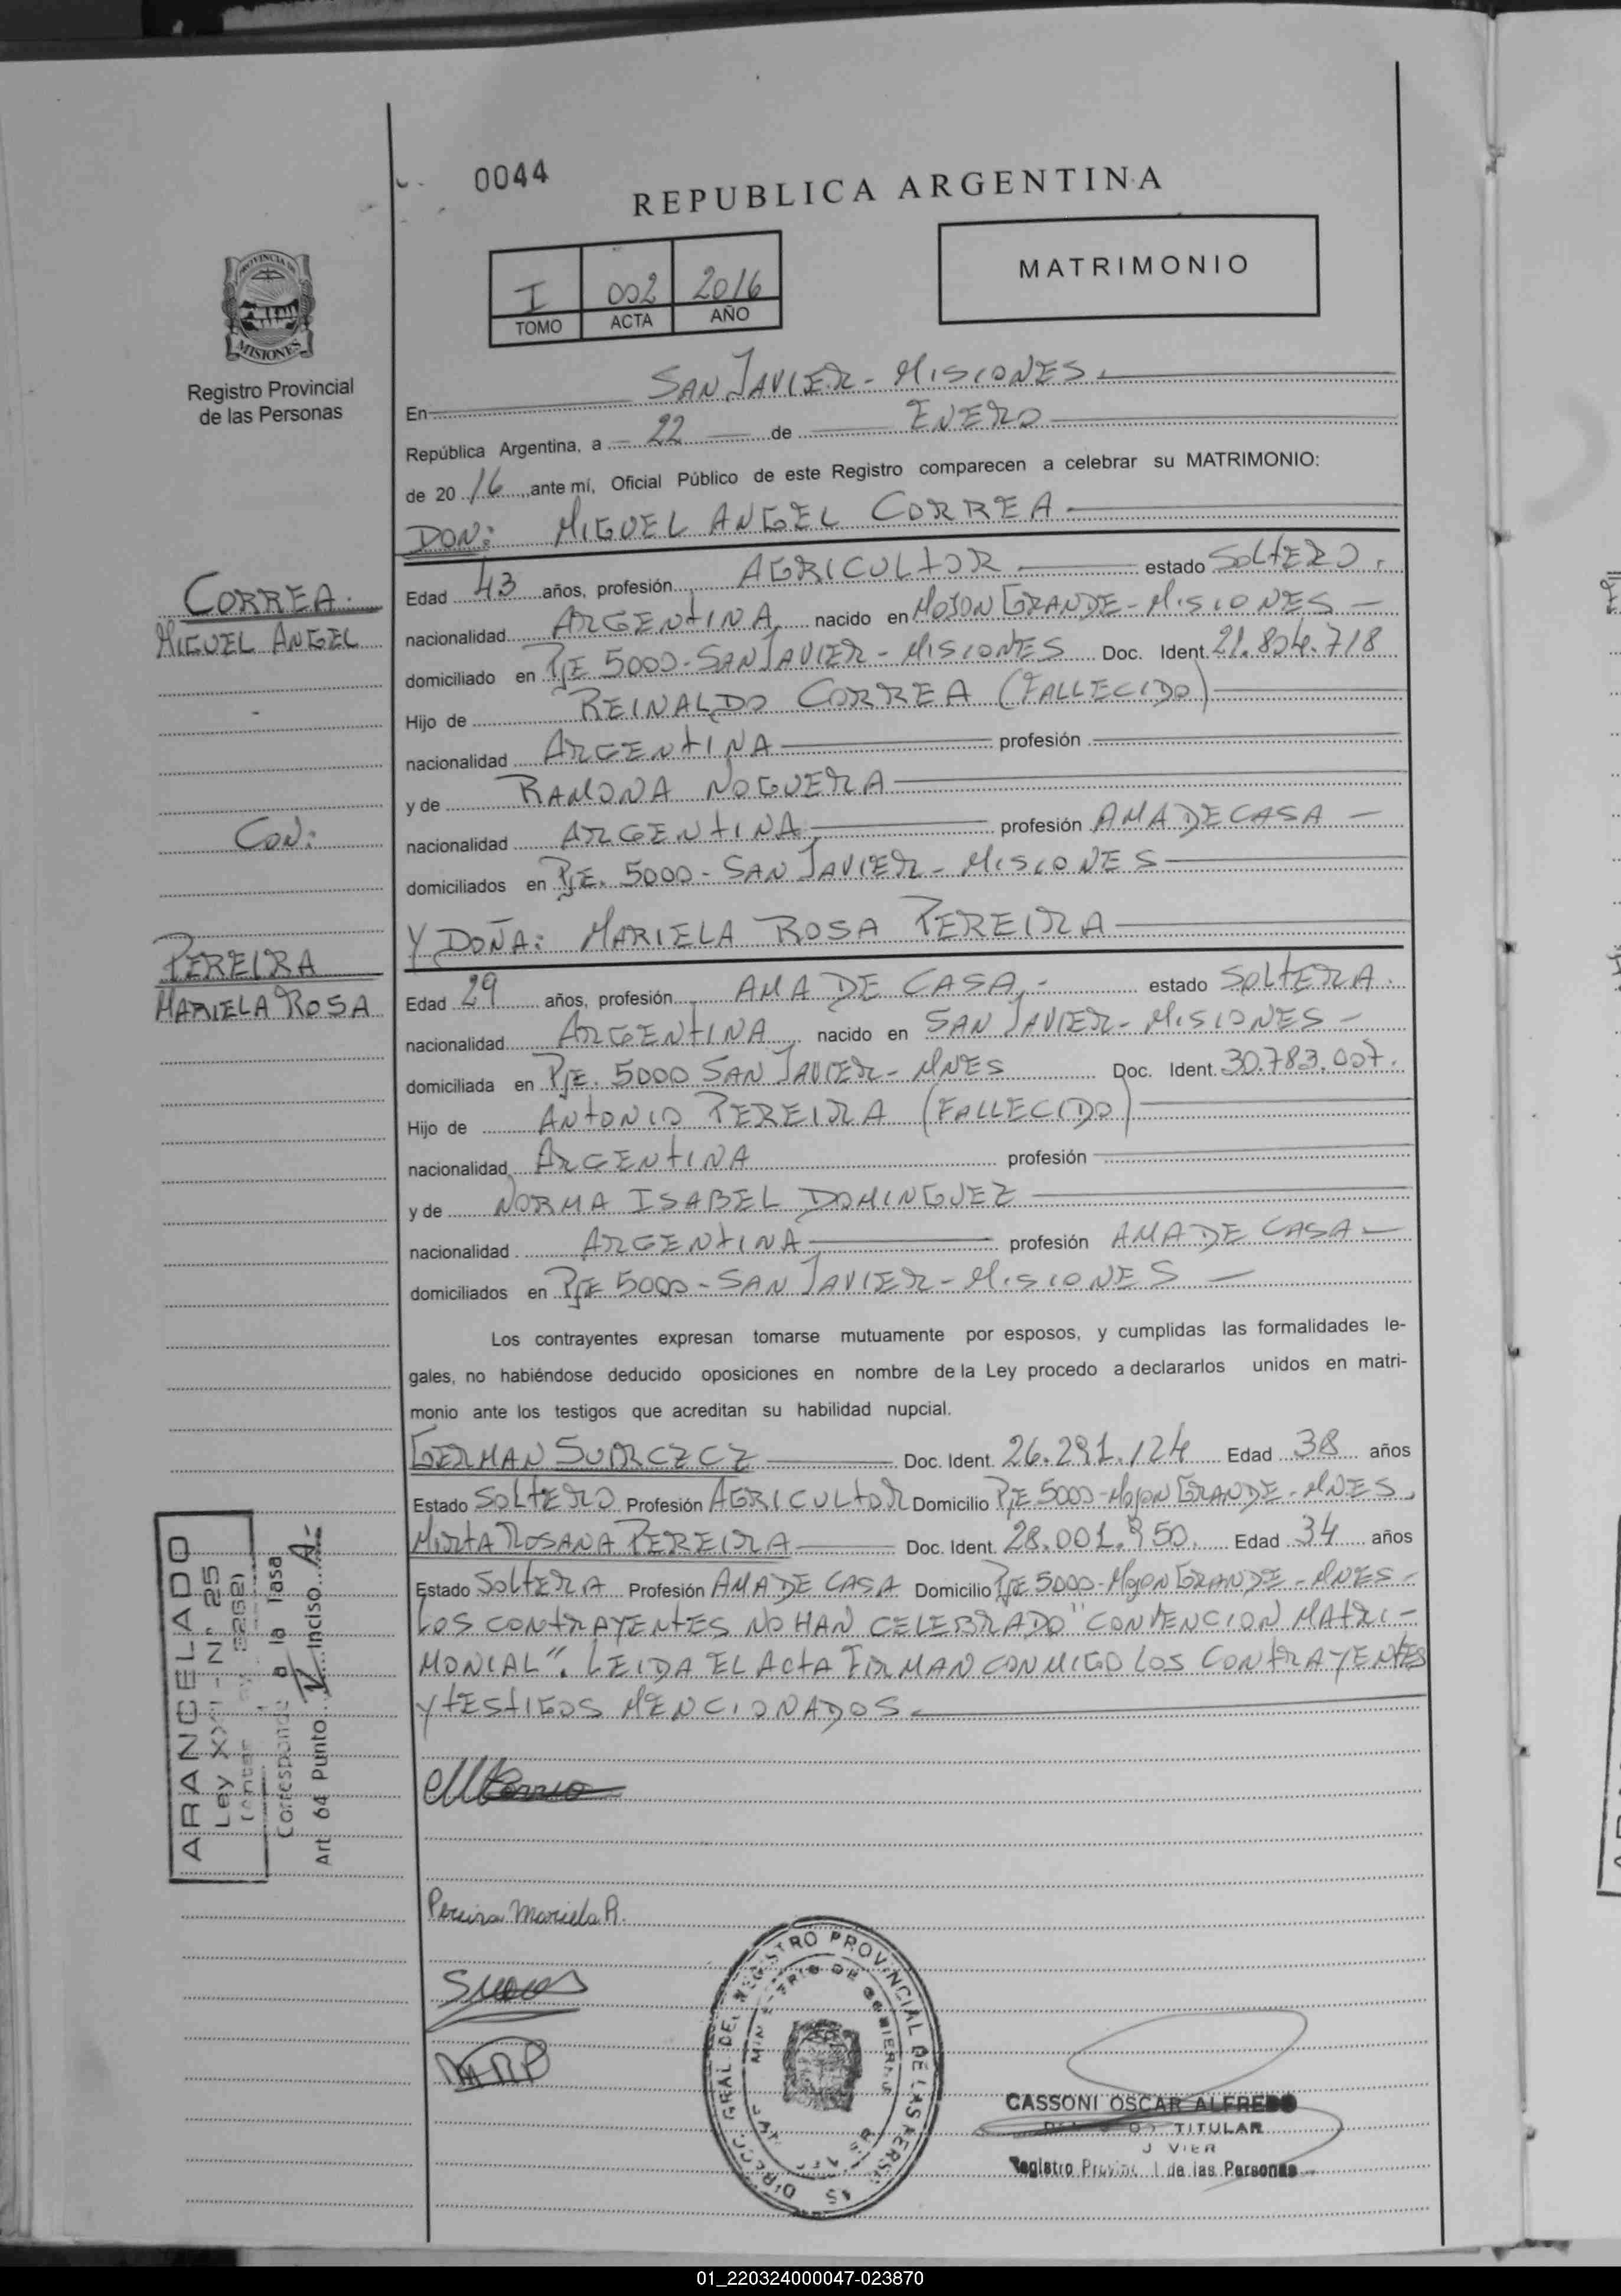 0044
REPUBLICA ARGENTINA
MATRIMONIO
I 002 2016
TOMO ACTA AÑO
PROVINCIA DE
MISIONES
Registro Provincial
de las Personas
En SAN JAVIER - MISIONES.
República Argentina, a 22 de ENERO
de 2016, ante mí, Oficial Público de este Registro comparecen a celebrar su MATRIMONIO:
DON: MIGUEL ANGEL CORREA
CORREA.
MIGUEL ANGEL
Edad 43 años, profesión AGRICULTOR estado SOLTERO.
nacionalidad ARGENTINA nacido en MOJON GRANDE - MISIONES -
domiciliado en PJE 5000 - SAN JAVIER - MISIONES Doc. Ident. 21.804.718
Hijo de REINALDO CORREA (FALLECIDO)
nacionalidad ARGENTINA profesión
y de RAMONA NOGUERA
CON:
nacionalidad ARGENTINA profesión AMA DE CASA -
domiciliados en PJE. 5000 - SAN JAVIER - MISIONES
Y DOÑA: MARIELA ROSA PEREIRA
PEREIRA
MARIELA ROSA
Edad 29 años, profesión AMA DE CASA, - estado SOLTERA.
nacionalidad ARGENTINA nacido en SAN JAVIER - MISIONES -
domiciliada en PJE. 5000 SAN JAVIER - MNES Doc. Ident. 30.783.007.
Hijo de ANTONIO PEREIRA (FALLECIDO)
nacionalidad ARGENTINA profesión
y de NORMA ISABEL DOMINGUEZ
nacionalidad ARGENTINA profesión AMA DE CASA -
domiciliados en PJE 5000 - SAN JAVIER - MISIONES -
Los contrayentes expresan tomarse mutuamente por esposos, y cumplidas las formalidades le-
gales, no habiéndose deducido oposiciones en nombre de la Ley procedo a declararlos unidos en matri-
monio ante los testigos que acreditan su habilidad nupcial.
GERMAN Doc. Ident. 26.291.124 Edad 38 años
Estado SOLTERO Profesión AGRICULTOR Domicilio PJE 5000 - MOJON GRANDE - MNES.
MIRTA ROSANA PEREIRA Doc. Ident. 28.001.950. Edad 34 años
Estado SOLTERA Profesión AMA DE CASA Domicilio PJE 5000 - MOJON GRANDE - MNES -
LOS CONTRAYENTES NO HAN CELEBRADO "CONVENCION MATRI-
MONIAL". LEIDA EL ACTA FIRMAN CONMIGO LOS CONTRAYENTES
Y TESTIGOS MENCIONADOS
ARANCELADO
Ley XVI - N° 25
Corresponde a la Tasa
Art. 64 Punto V Inciso A-
Pereira Mariela R.
MRP
REGISTRO PROVINCIAL DE LAS PERSONAS
MINISTERIO DE GOBIERNO
CASSONI OSCAR ALFREDO
TITULAR
Registro Provincial de las Personas
01_220324000047-023870